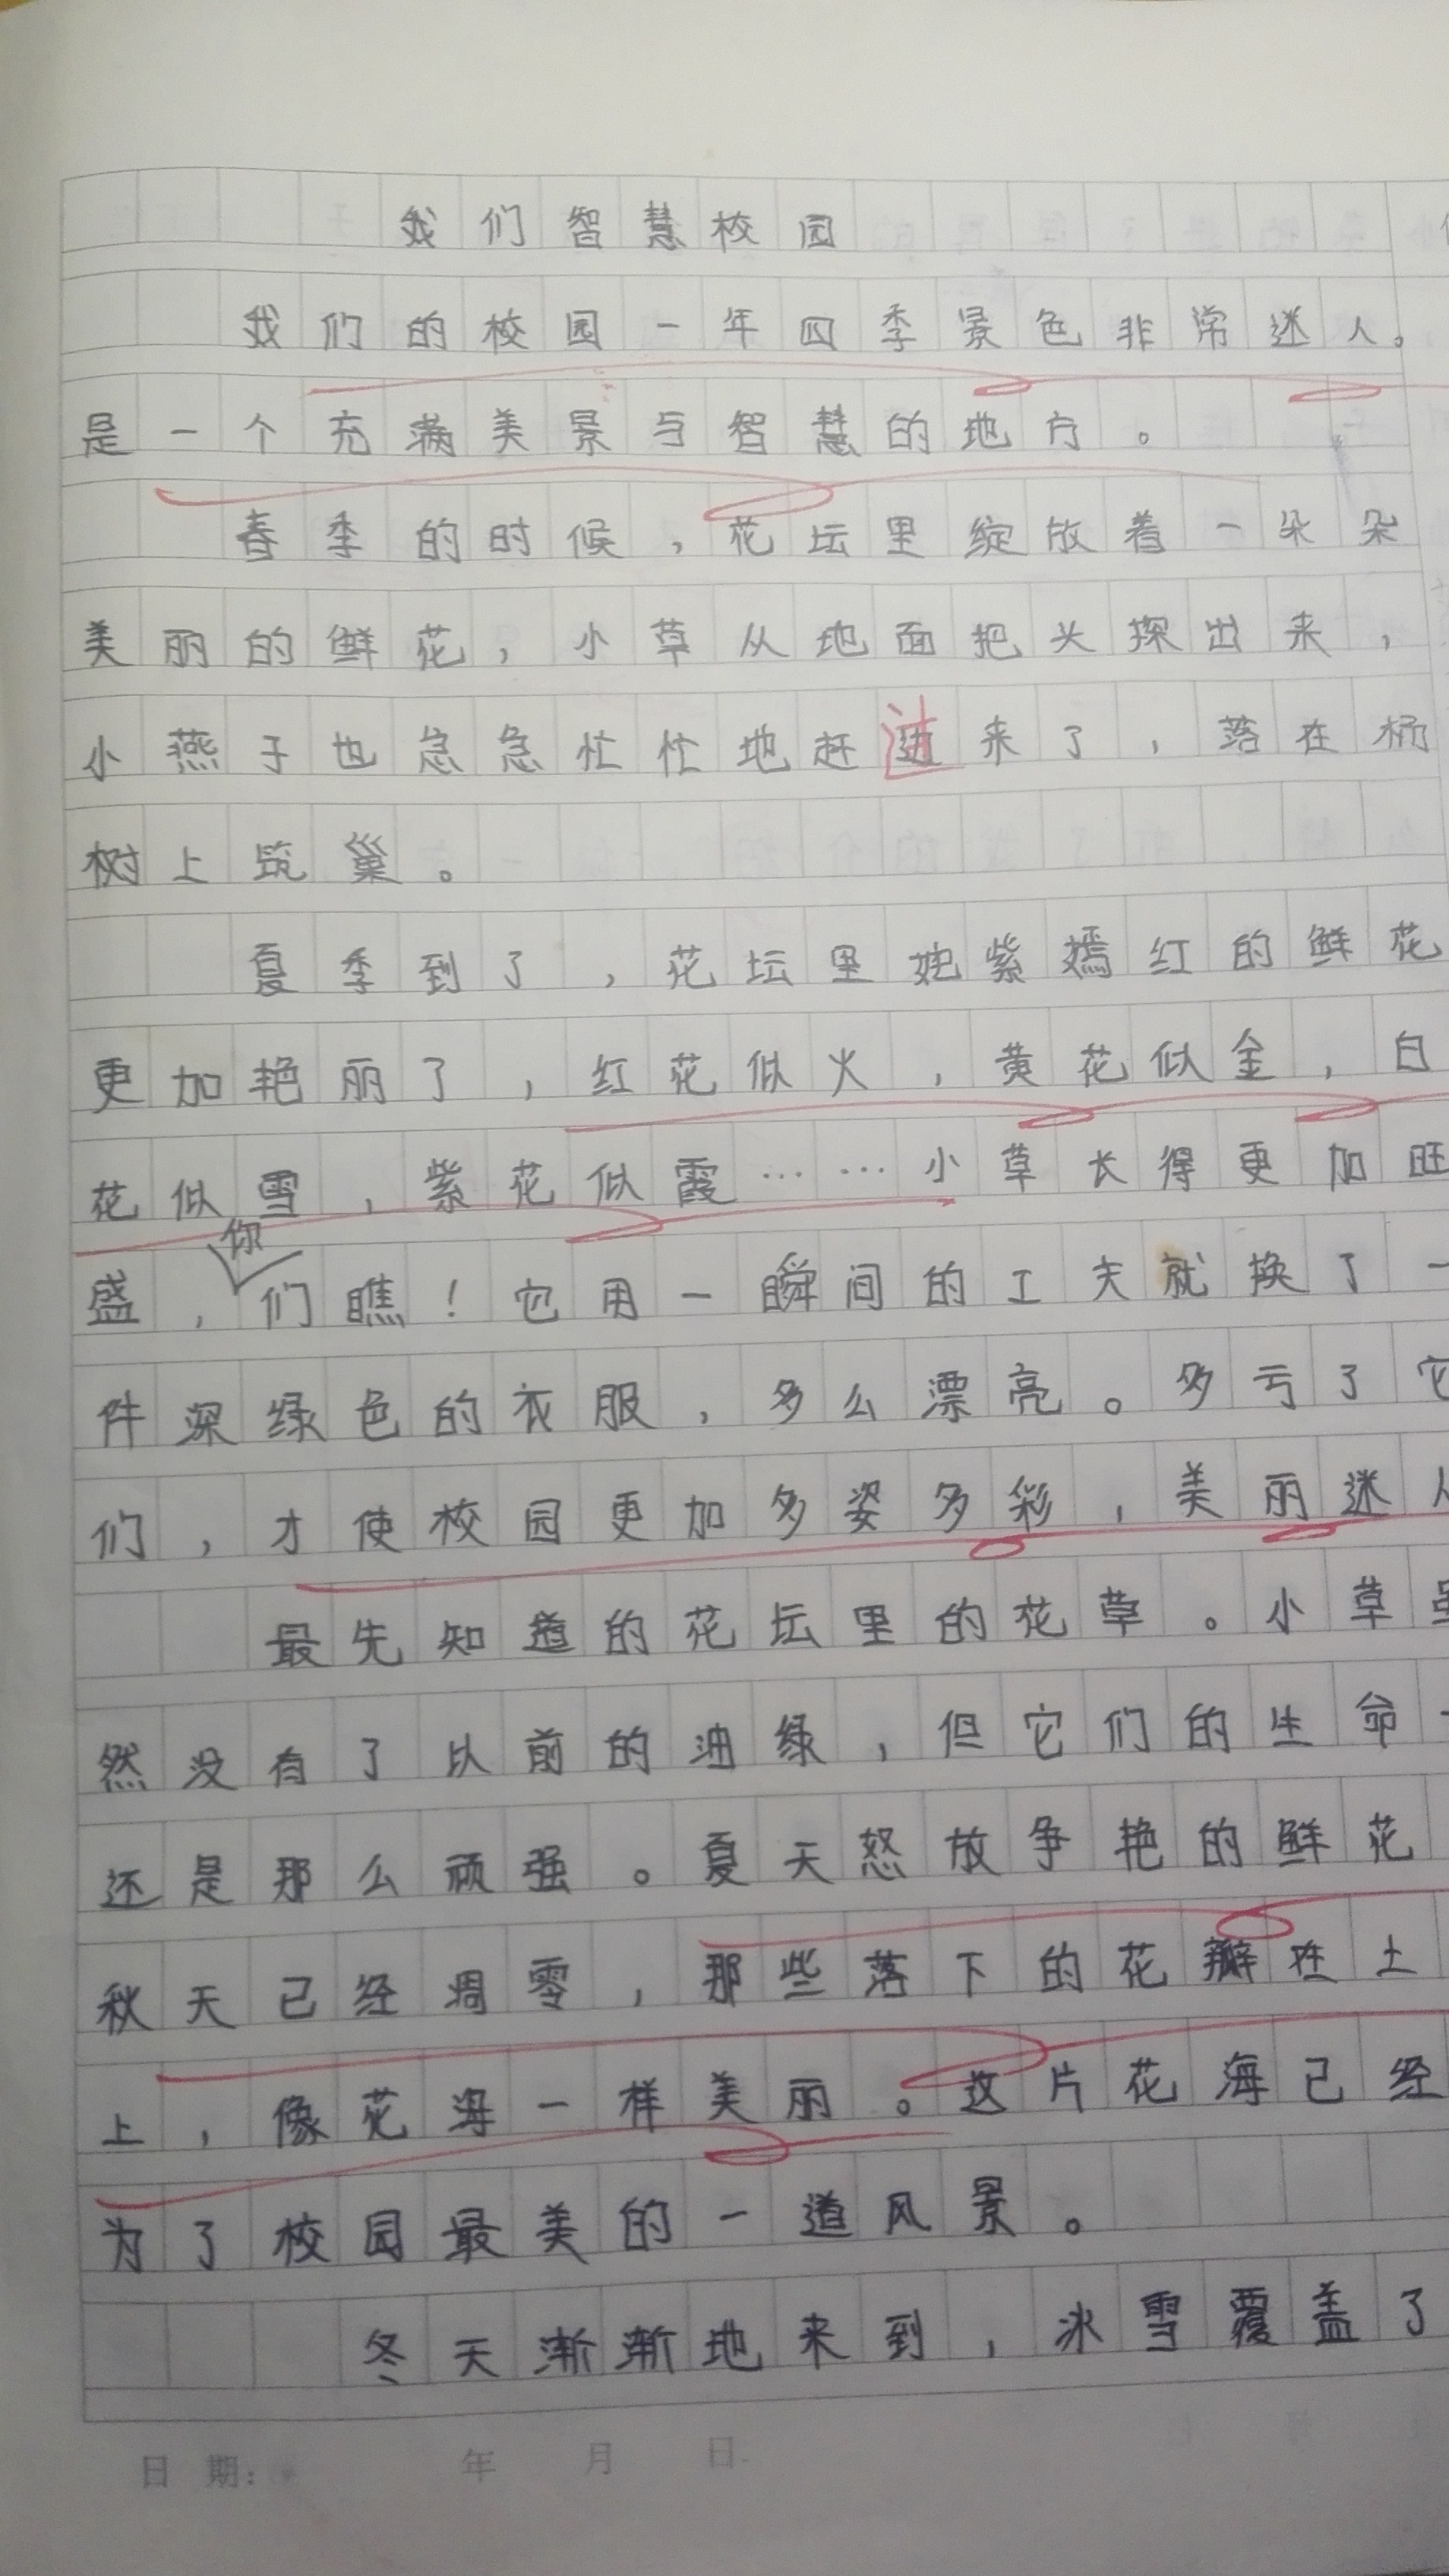 我们智慧校园
我们的校园一年四季景色非常迷人。
是一个充满美景与智慧的地方。
春季的时候，花坛里绽放着一朵朵
美丽的鲜花，小草从地面把头探出来，
小燕子也急急忙忙地赶过来了，落在杨
树上筑巢。
夏季到了，花坛里姹紫嫣红的鲜花
更加艳丽了，红花似火，黄花似金，白
花似雪，紫花似霞……小草长得更加旺
盛，你们瞧！它用一瞬间的工夫就换了一
件深绿色的衣服，多么漂亮。多亏了它
们，才使校园更加多姿多彩，美丽迷人
最先知道的花坛里的花草。小草虽
然没有了以前的油绿，但它们的生命
还是那么顽强。夏天怒放争艳的鲜花
秋天已经凋零，那些落下的花瓣在土
上，像花海一样美丽。这片花海已经
为了校园最美的一道风景。
冬天渐渐地来到，冰雪覆盖了
日期： 年 月 日